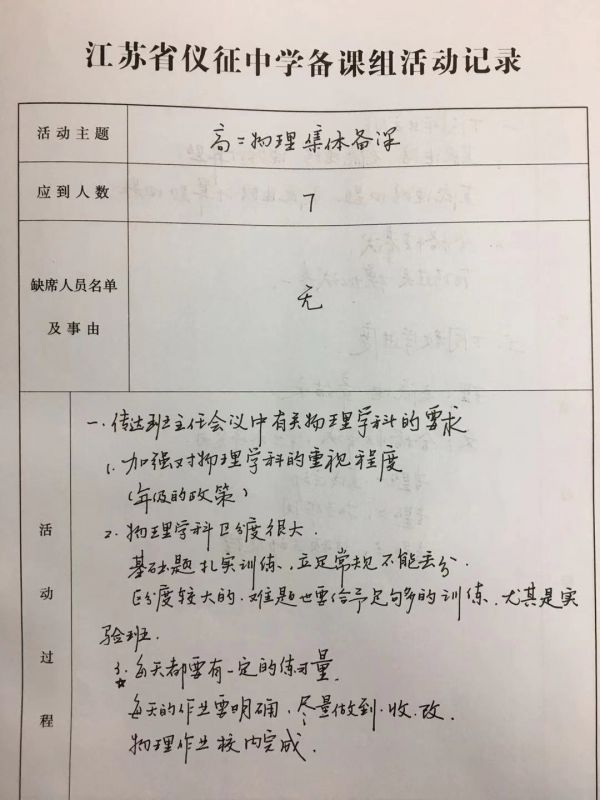 江苏省仪征中学备课组活动记录
活动主题
高二物理集体备课
应到人数
7
缺席人员名单
及事由
无
活动过程
一.传达班主任会议中有关物理学科的要求
1.加强对物理学科的重视程度
(年级的政策)
2.物理学科区分度很大.
基础题扎实训练,立足常规不能丢分.
区分度较大的.难题也要给予足够多的训练.尤其是实
验班.
3.每天都要有一定的练习量.
☆
每天的作业要明确,尽量做到.收.改.
物理作业校内完成.